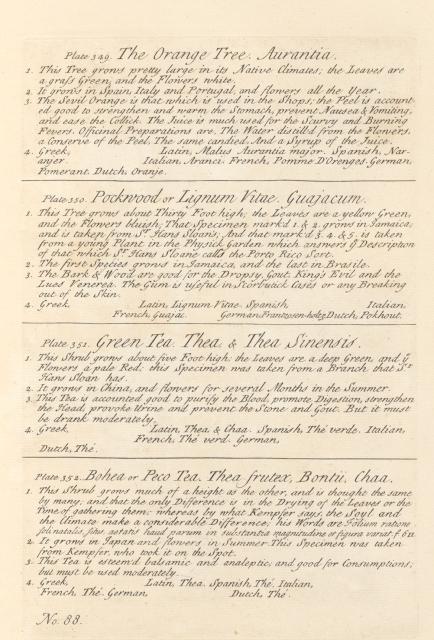 Plate 349. The Orange Tree. Aurantia.
1. This Tree grows pretty large in its Native Climates; the Leaves are
a grass Green, and the Flowers white.
2. It grows in Spain, Italy and Portugal, and flowers all the Year.
3. The Sevil Orange is that which is used in the Shops; the Peel is account-
ed good to strengthen and warm the Stomach, prevent Nausea & Vomiting,
and ease the Collick. The Juice is much used for the Scurvy and Burning
Fevers. Officinal Preparations are. The Water distill'd from the Flowers,
a Conserve of the Peel, The same candied, And a Syrup of the Juice.
4. Greek, Latin, Malus Aurantia major. Spanish, Nar-
anjer. Italian, Aranci. French, Pomme D'Orenges. German,
Pomerant. Dutch, Oranje.
Plate 350. Pockwood or Lignum Vitae. Guajacum.
1. This Tree grows about Thirty Foot high; the Leaves are a yellow Green,
and the Flowers bluish; That Specimen mark'd 1. & 2. grows in Jamaica,
and is taken from Sr. Hans Sloan's; And that mark'd 3. 4. & 5. is taken
from a young Plant in the Physick Garden which answers ye Description
of that which Sr. Hans Sloane calls the Porto Rico Sort.
2. The first Species grows in Jamaica, and the last in Brasile.
3. The Bark & Wood are good for the Dropsy, Gout, King's Evil and the
Lues Venerea. The Gum is useful in Scorbutick Cases or any Breaking
out of the Skin.
4. Greek, Latin, Lignum Vitae. Spanish, Italian,
French, Guajac. German, Franzosen-holez, Dutch, Pokhout.
Plate 351. Green Tea. Thea. & Thea Sinensis.
1. This Shrub grows about five Foot high; the Leaves are a deep Green, and ye
Flowers a pale Red; this Specimen was taken from a Branch that Sr.
Hans Sloan has.
2. It grows in China, and flowers for several Months in the Summer.
3. This Tea is accounted good to purify the Blood, promote Digestion, strengthen
the Head, provoke Urine and prevent the Stone and Gout. But it must
be drank moderately.
4. Greek, Latin, Thea, & Chaa. Spanish, Thé verde. Italian,
French, Thé verd. German,
Dutch, Thé.
Plate 352. Bohea or Peco Tea. Thea frutex, Bontii, Chaa.
1. This Shrub grows much of a height as the other, and is thought the same
by many, and that the only Difference is in the Drying of the Leaves or the
Time of gathering them; whereas by what Kempfer says the Soyl and
the Climate make a considerable Difference; his Words are Folium ratione
soli natalis, situs aetatis haud parum in substantia magnitudine et figura variat
2. It grows in Japan and flowers in Summer. This Specimen was taken
from Kempfer, who took it on the Spot.
3. This Tea is esteem'd balsamic and analeptic, and good for Consumptions;
but must be used moderately.
4. Greek, Latin, Thea. Spanish, Thé. Italian,
French, Thé. German, Dutch, Thé.
No. 88.